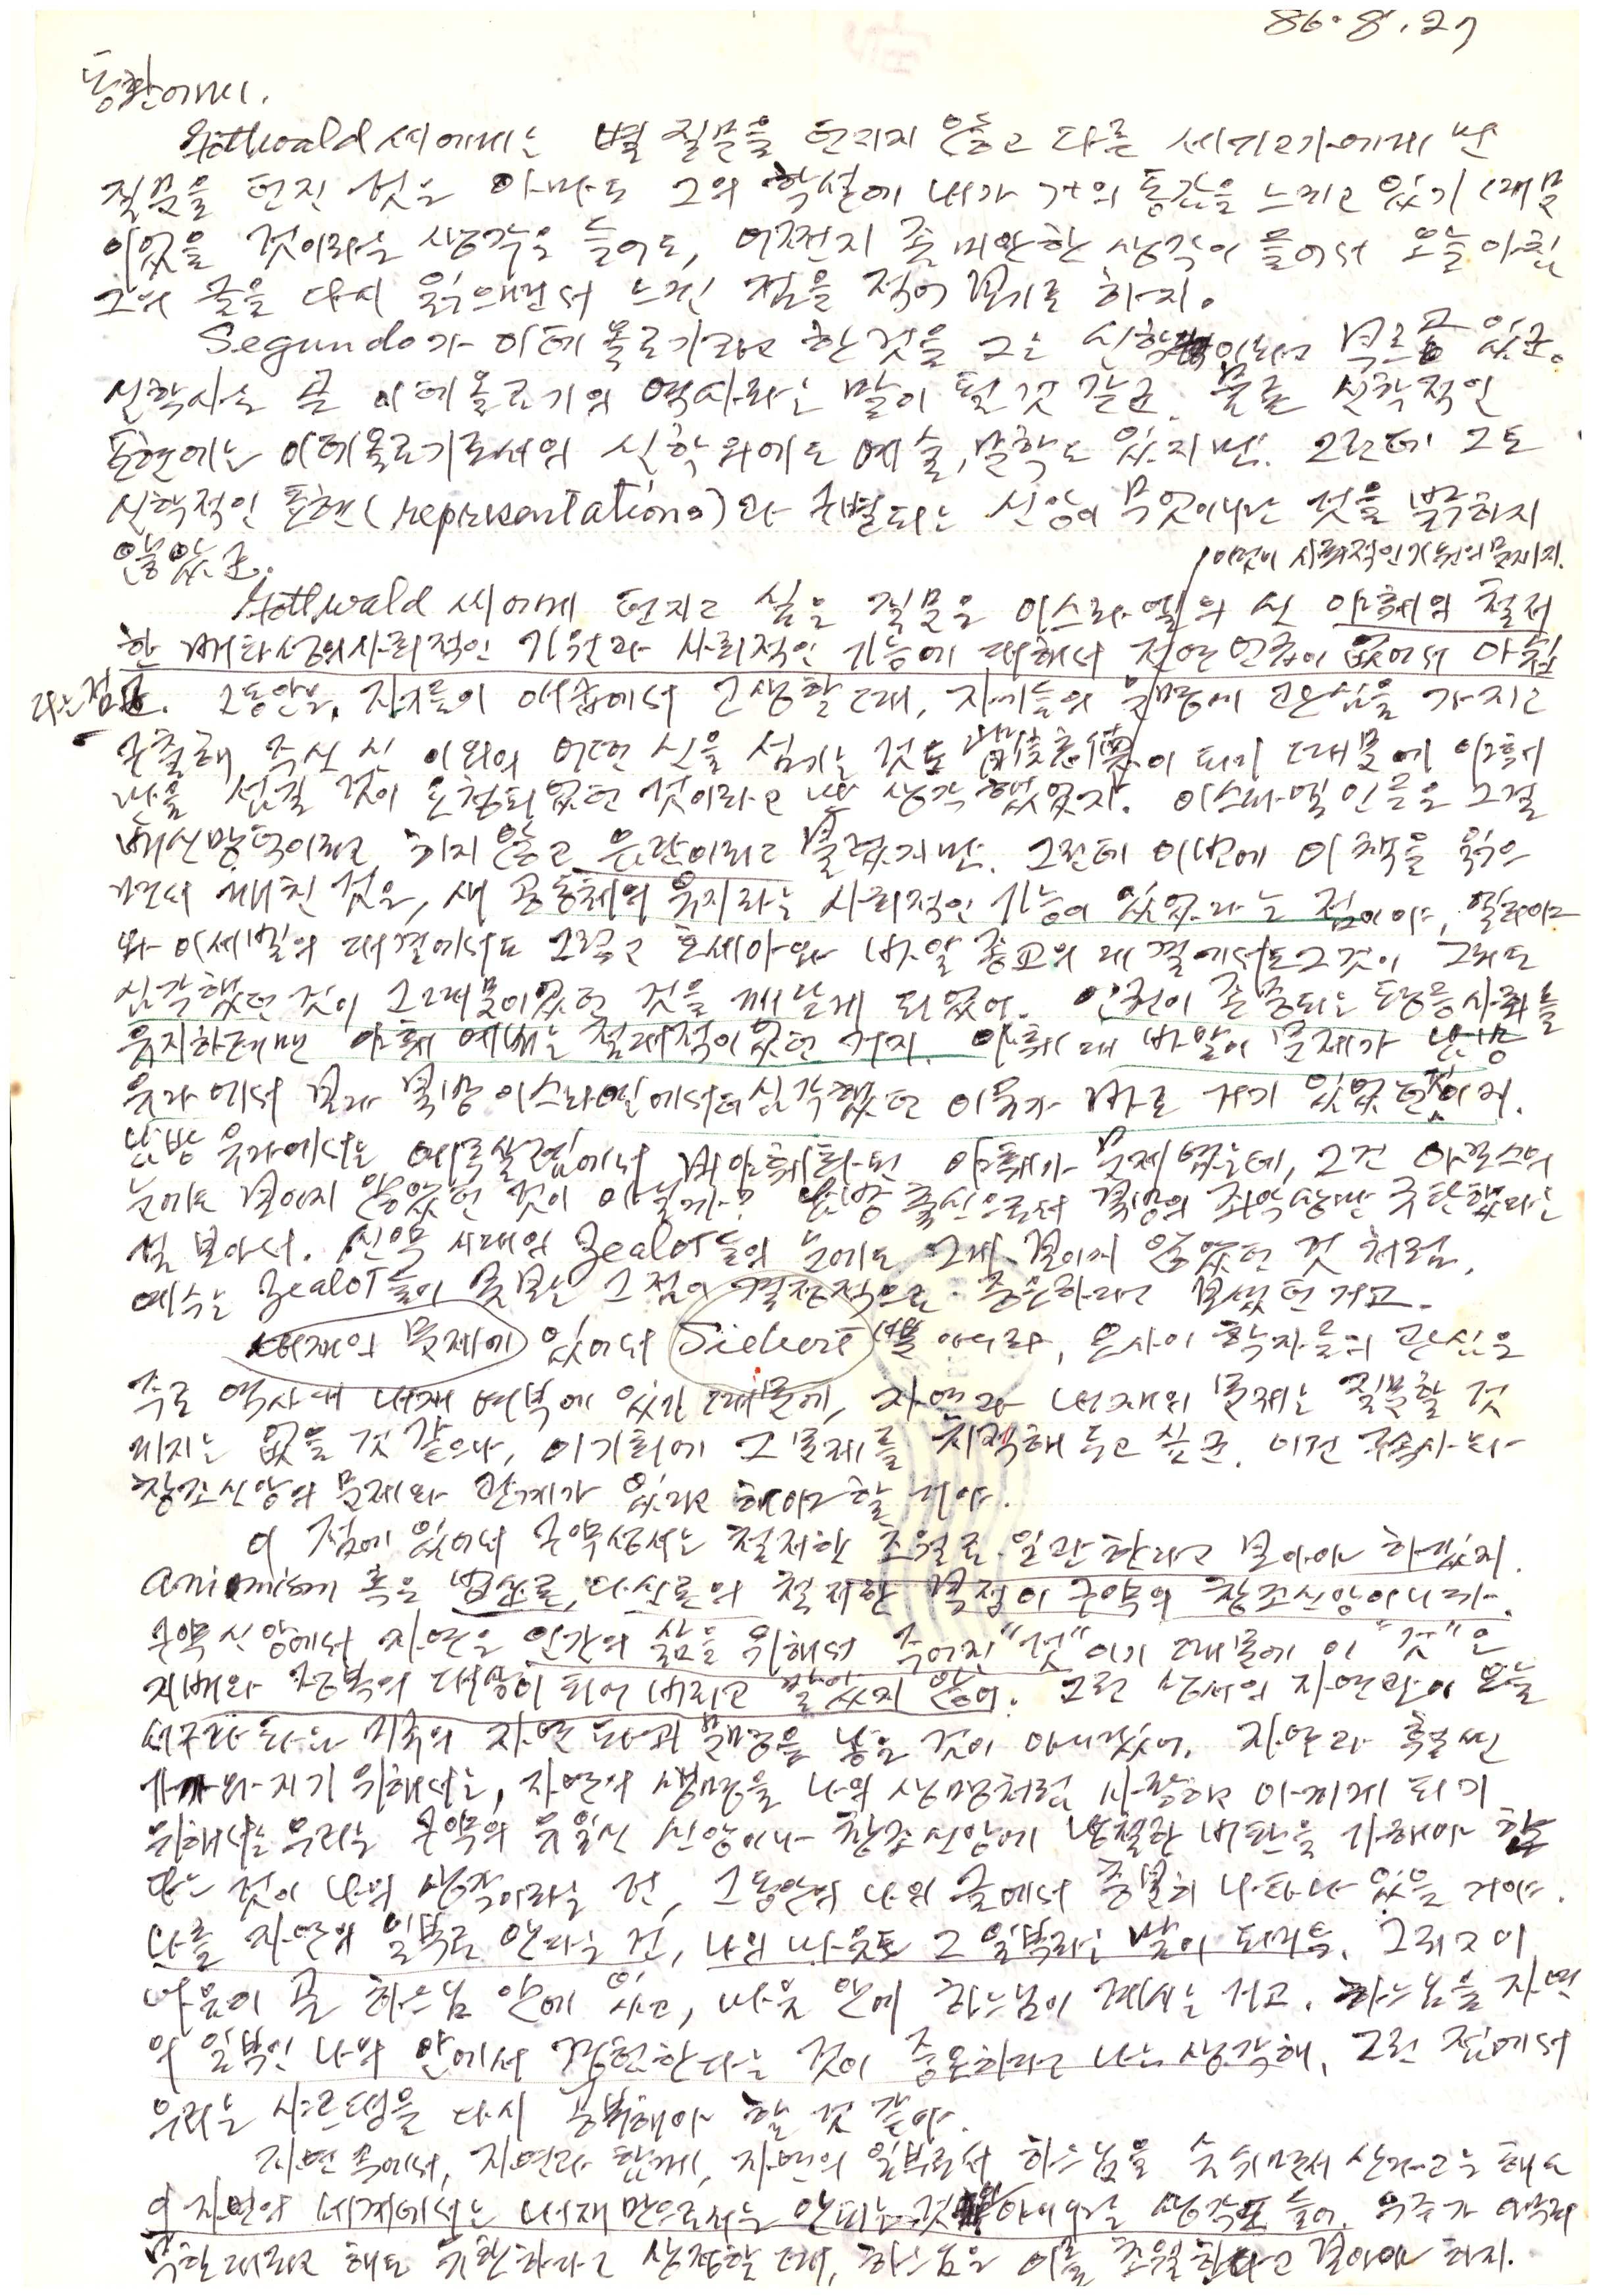 86. 8. 27
동환에게.
Gottwald 씨에게는 별 질문을 던지지 않고 다른 세 기고가에게만
질문을 던진 것은 아마도 그의 학설에 내가 거의 동감을 느끼고 있기 때문
이었을 것이라는 생각은 들어도, 어쩐지 좀 미안한 생각이 들어서 오늘 아침
그의 글을 다시 읽으면서 느낀 점을 적어 보기로 하지.
Segundo가 이데올로기라고 한 것을 그는 신학이라고 부르고 있군.
신학사는 곧 이데올로기의 역사라는 말이 될 것 같군. 물론 신학적인
표현에는 이데올로기로서의 신학 외에도 예술, 문학도 있지만. 그런데 그도
신학적인 표현(representations)과 구별되는 신앙이 무엇이냐는 것을 밝히지
않았군.
이것이 사회적인 기원의 문제지.
Gottwald 씨에게 던지고 싶은 질문은 이스라엘의 신 야훼의 철저
한 배타성의 사회적인 기원과 사회적인 기능에 대해서 전연 언급이 없어서 아쉽
다는 점. 그동안은, 자기들이 애급에서 고생할 때, 자기들의 운명에 관심을 가지고
구출해 주신 신 이외의 어떤 신을 섬기는 것도 背信忘德이 되기 때문에 야훼
만을 섬길 것이 요청되었던 것이라고만 생각했었지. 이스라엘인들은 그걸
배신망덕이라고 하지 않고 음란이라고 불렀지만. 그런데 이번에 이 책을 읽으
면서 깨친 것은, 새 공동체의 유지라는 사회적인 기능이 있었다는 점이야. 엘리야
와 이세벨의 대결에서도 그렇고 호세아와 바알 종교의 대결에서도 그것이 그리도
심각했던 것이 그 때문이었던 것을 깨닫게 되었어. 인권이 존중되는 평등사회를
유지하려면 야훼 예배는 절대적이었던 거지. 야훼 대 바알의 문제가 남방
유다에서 보다 북방 이스라엘에서 더 심각했던 이유가 바로 거기 있었던 거지.
남방 유다에서는 예루살렘에서 바알화한 야훼가 문제였는데, 그건 아모스의
눈에도 보이지 않았던 것이 아닐까? 남방 출신으로서 북방의 죄악상만 규탄했다는
걸 보아서. 신약 시대의 Zealot들의 눈에도 그게 보이지 않았던 것처럼.
예수는 Zealot들이 못 보는 그 점이 결정적으로 중요하다고 보셨던 거고.
내재의 문제에 있어서 Siebert뿐 아니라, 온 사이 학자들의 관심은
주로 역사 내 내재 여부에 있기 때문에, 자연과 내재의 문제는 질문할 것
까지는 없을 것 같으나, 이 기회에 그 문제를 지적해 두고 싶군. 이건 구속사나
창조신앙의 문제와 관계가 있다고 해야 할 거야.
이 점에 있어서 구약성서는 철저한 초월로 일관한다고 보아야 하겠지.
animism 혹은 범신론, 다신론의 철저한 부정이 구약의 창조신앙이니까.
구약 신앙에서 자연은 인간의 삶을 위해서 주어진 "것"이기 때문에 이 "것"은
지배와 정복의 대상이 되어 버리고 말았지 않아. 그런 성서의 자연관이 오늘
서구라파나 미국의 자연 파괴 문명을 낳은 것이 아니겠어. 자연과 훨씬
가까와지기 위해서는, 자연의 생명을 나의 생명처럼 사랑하고 아끼게 되기
위해서는 우리는 구약의 유일신 신앙이나 창조신앙에 냉철한 비판을 가해야 한
다는 것이 나의 생각이라는 건, 그동안의 나의 글에서 충분히 나타나 있을 거야.
나를 자연의 일부로 안다는 건, 나의 마음도 그 일부라는 말이 되거든. 그리고 이
마음이 곧 하느님 안에 있고, 마음 안에 하느님이 계시는 거고. 하느님을 자연
의 일부인 나의 안에서 경험한다는 것이 중요하다고 나는 생각해. 그런 점에서
우리는 샤르뎅을 다시 공부해야 할 것 같아.
자연 속에서, 자연과 함께, 자연의 일부로서 하느님을 숨쉬면서 산다고는 해도
이 자연의 세계에서는 내재만으로서는 안 되는 것 아니냐는 생각도 들어. 우주가 아무리
무한대라고 해도 유한하다고 상정할 때, 하느님은 이를 초월한다고 보아야 하지.